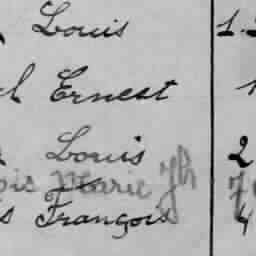 Louis 1.
Ernest
Louis 2
Marie Jh
François 4